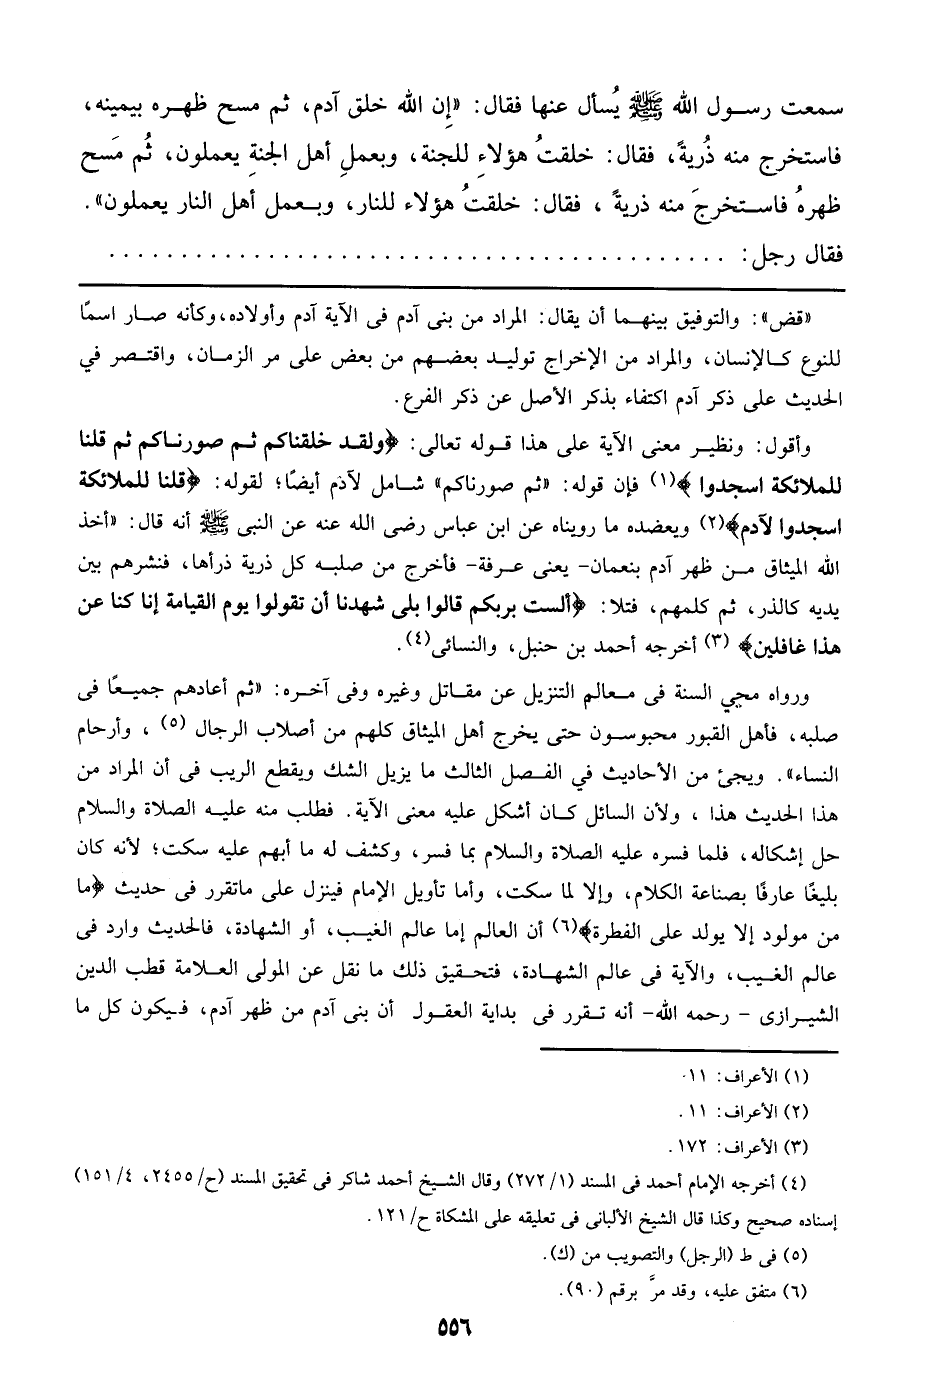 سمعت رسول الله ﷺ يُسأل عنها فقال: «إن الله خلق آدم، ثم مسح ظهره بيمينه،
فاستخرج منه ذُريةً، فقال: خلقتُ هؤلاءِ للجنة، وبعملِ أهل الجنةِ يعملون، ثُم مَسح
ظهرهُ فاستخرجَ منه ذريةً ، فقال: خلقتُ هؤلاء للنار، وبعمل أهل النار يعملون».
فقال رجل: . . . . . . . . . . . . . . . . . . . . . . . . . . . . . . . . . . . . . . . . . .
«قض»: والتوفيق بينهما أن يقال: المراد من بنى آدم فى الآية آدم وأولاده،وكأنه صار اسمًا
للنوع كالإنسان، والمراد من الإخراج توليد بعضهم من بعض على مر الزمان، واقتصر في
الحديث على ذكر آدم اكتفاء بذكر الأصل عن ذكر الفرع.
وأقول: ونظير معنى الآية على هذا قوله تعالى: ﴿ولقد خلقناكم ثم صورناكم ثم قلنا
للملائكة اسجدوا ﴾(١) فإن قوله: «ثم صورناكم» شامل لآدم أيضًا؛ لقوله: ﴿قلنا للملائكة
اسجدوا لآدم﴾(٢) ويعضده ما رويناه عن ابن عباس رضى الله عنه عن النبى ﷺ أنه قال: «أخذ
الله الميثاق من ظهر آدم بنعمان- يعنى عرفة- فأخرج من صلبه كل ذرية ذرأها، فنشرهم بين
يديه كالذر، ثم كلمهم، فتلا: ﴿ألست بربكم قالوا بلى شهدنا أن تقولوا يوم القيامة إنا كنا عن
هذا غافلين﴾ (٣) أخرجه أحمد بن حنبل، والنسائى(٤).
ورواه محيي السنة فى معالم التنزيل عن مقاتل وغيره وفى آخره: «ثم أعادهم جميعًا فى
صلبه، فأهل القبور محبوسون حتى يخرج أهل الميثاق كلهم من أصلاب الرجال (٥) ، وأرحام
النساء». ويجئ من الأحاديث في الفصل الثالث ما يزيل الشك ويقطع الريب فى أن المراد من
هذا الحديث هذا ، ولأن السائل كان أشكل عليه معنى الآية. فطلب منه عليه الصلاة والسلام
حل إشكاله، فلما فسره عليه الصلاة والسلام بما فسر، وكشف له ما أبهم عليه سكت؛ لأنه كان
بليغًا عارفًا بصناعة الكلام، وإلا لما سكت، وأما تأويل الإمام فينزل على ماتقرر فى حديث ﴿ما
من مولود إلا يولد على الفطرة﴾(٦) أن العالم إما عالم الغيب، أو الشهادة، فالحديث وارد فى
عالم الغيب، والآية فى عالم الشهادة، فتحقيق ذلك ما نقل عن المولى العلامة قطب الدين
الشيرازى - رحمه الله- أنه تقرر فى بداية العقول أن بنى آدم من ظهر آدم، فيكون كل ما
(١) الأعراف: ١١.
(٢) الأعراف: ١١.
(٣) الأعراف: ١٧٢.
(٤) أخرجه الإمام أحمد فى المسند (٢٧٢/١) وقال الشيخ أحمد شاكر فى تحقيق المسند (ح/٢٤٥٥، ١٥١/٤)
إسناده صحيح وكذا قال الشيخ الألبانى فى تعليقه على المشكاة ح/١٢١.
(٥) فى ط (الرجل) والتصويب من (ك).
(٦) متفق عليه، وقد مرَّ برقم (٩٠).
٥٥٦